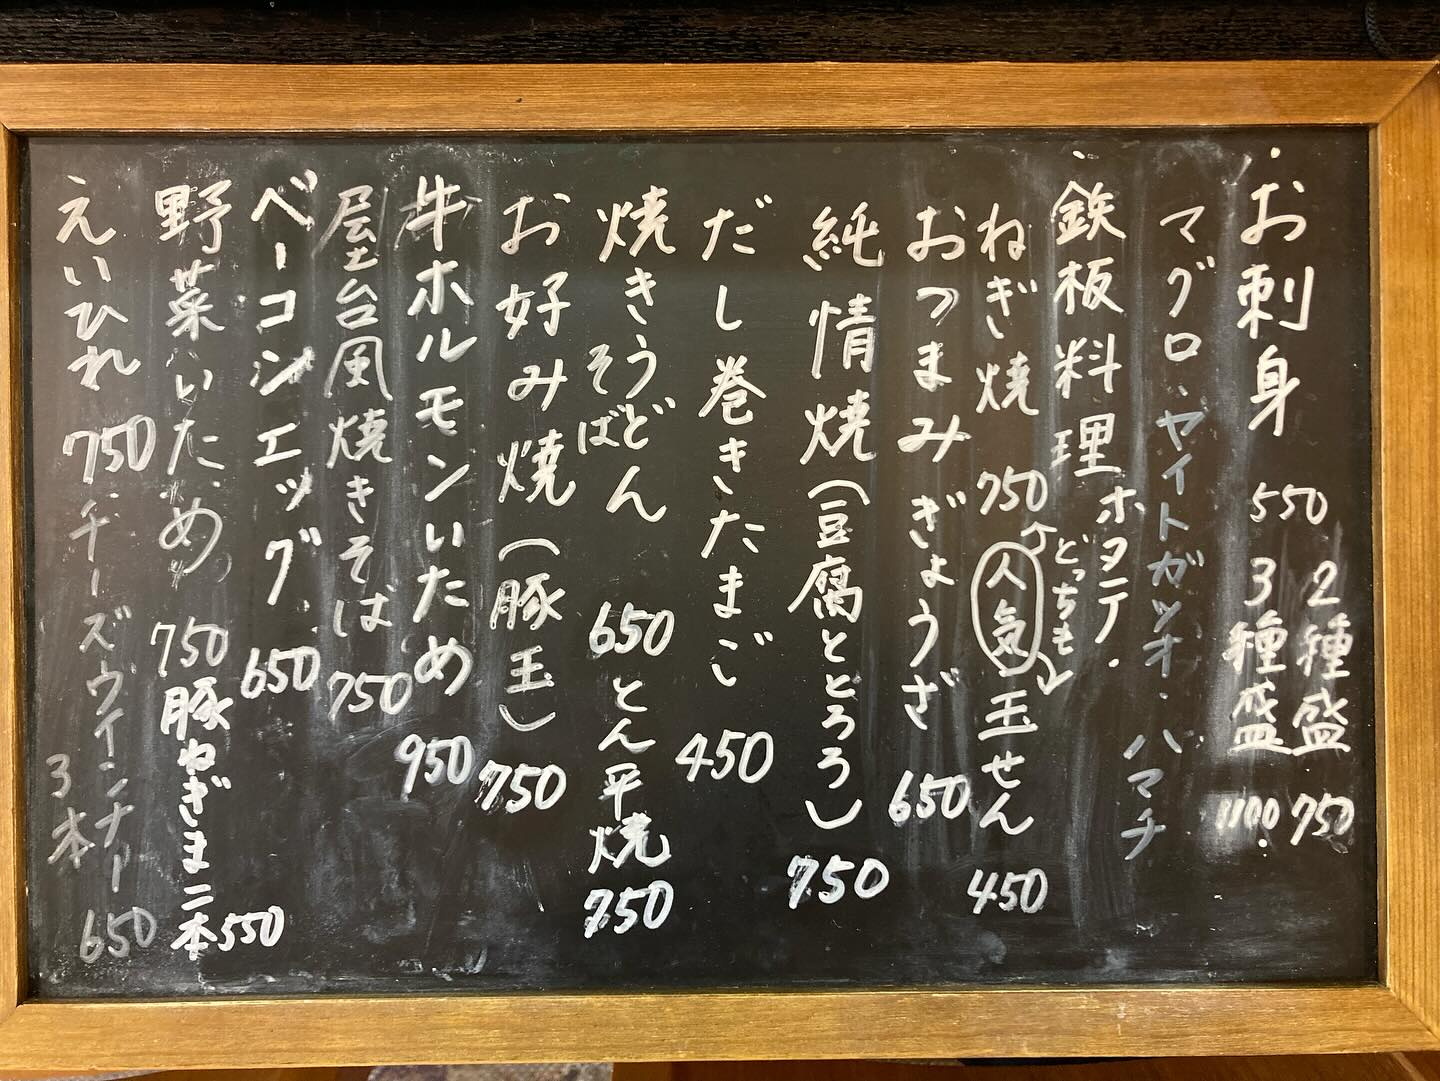 ・お刺身 550 2種盛 750
3種盛 1100.
マグロ・ヤイトガツオ・ハマチ
ホタテ・
・鉄板料理
ねぎ焼 750 人気 どっちも 玉せん 450
おつまみぎょうざ 650
純情焼(豆腐ととろろ) 750
だし巻きたまご 450
焼きうどん
そば 650 とん平焼 750
お好み焼(豚玉) 750
牛ホルモンいため 950
屋台風焼きそば 750
ベーコンエッグ 650
野菜いため 750 豚ねぎま二本 550
えいひれ 750 チーズウインナー
3本 650